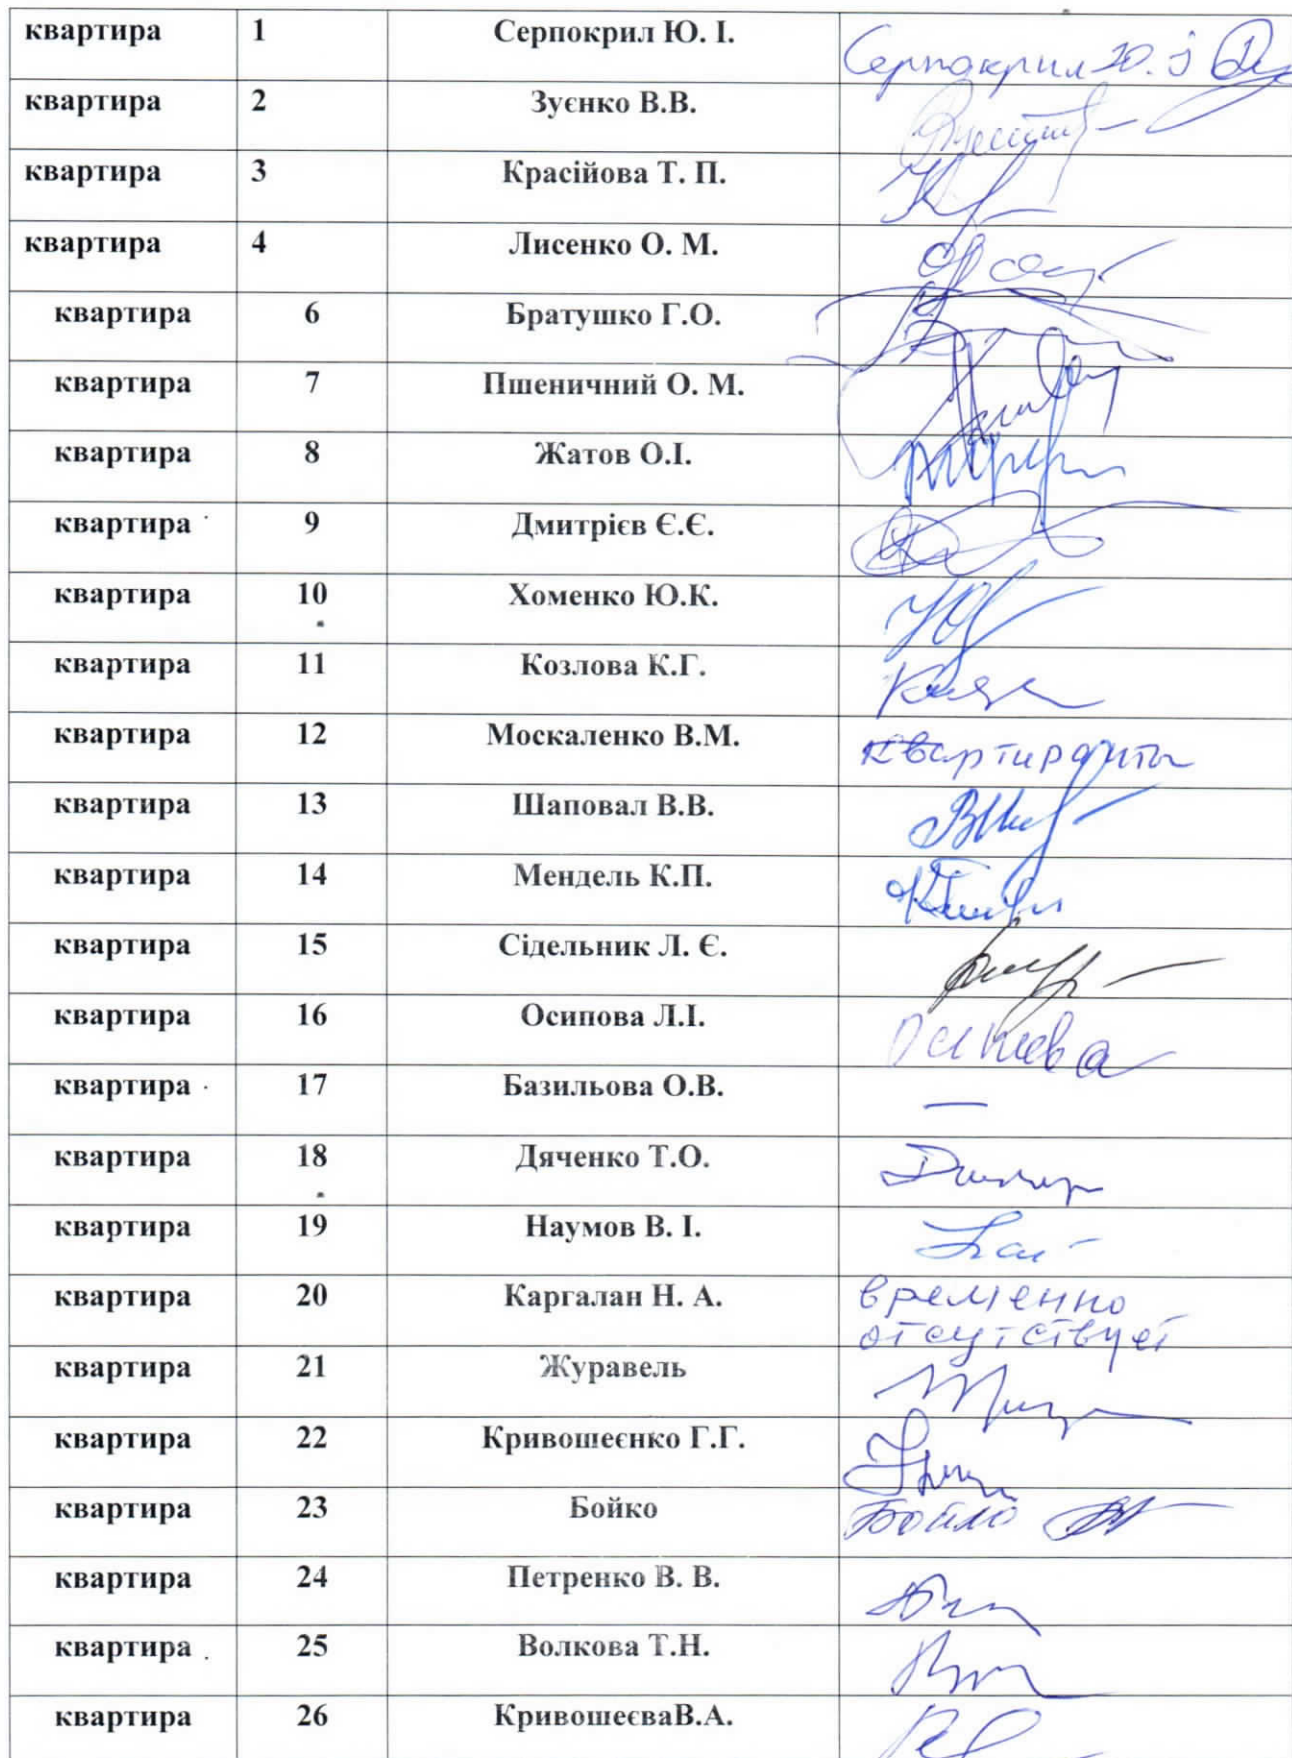 квартира 1 Серпокрил Ю. І. Серпокрил Ю. І
квартира 2 Зуєнко В.В.
квартира 3 Красійова Т. П.
квартира 4 Лисенко О. М.
квартира 6 Братушко Г.О.
квартира 7 Пшеничний О. М.
квартира 8 Жатов О.І.
квартира 9 Дмитрієв Є.Є.
квартира 10 Хоменко Ю.К.
квартира 11 Козлова К.Г.
квартира 12 Москаленко В.М. квартиранты
квартира 13 Шаповал В.В.
квартира 14 Мендель К.П.
квартира 15 Сідельник Л. Є.
квартира 16 Осипова Л.І.
квартира 17 Базильова О.В. —
квартира 18 Дяченко Т.О.
квартира 19 Наумов В. І.
квартира 20 Каргалан Н. А. временно
отсутствует
квартира 21 Журавель
квартира 22 Кривошеєнко Г.Г.
квартира 23 Бойко Бойко
квартира 24 Петренко В. В.
квартира 25 Волкова Т.Н.
квартира 26 КривошеєваВ.А.